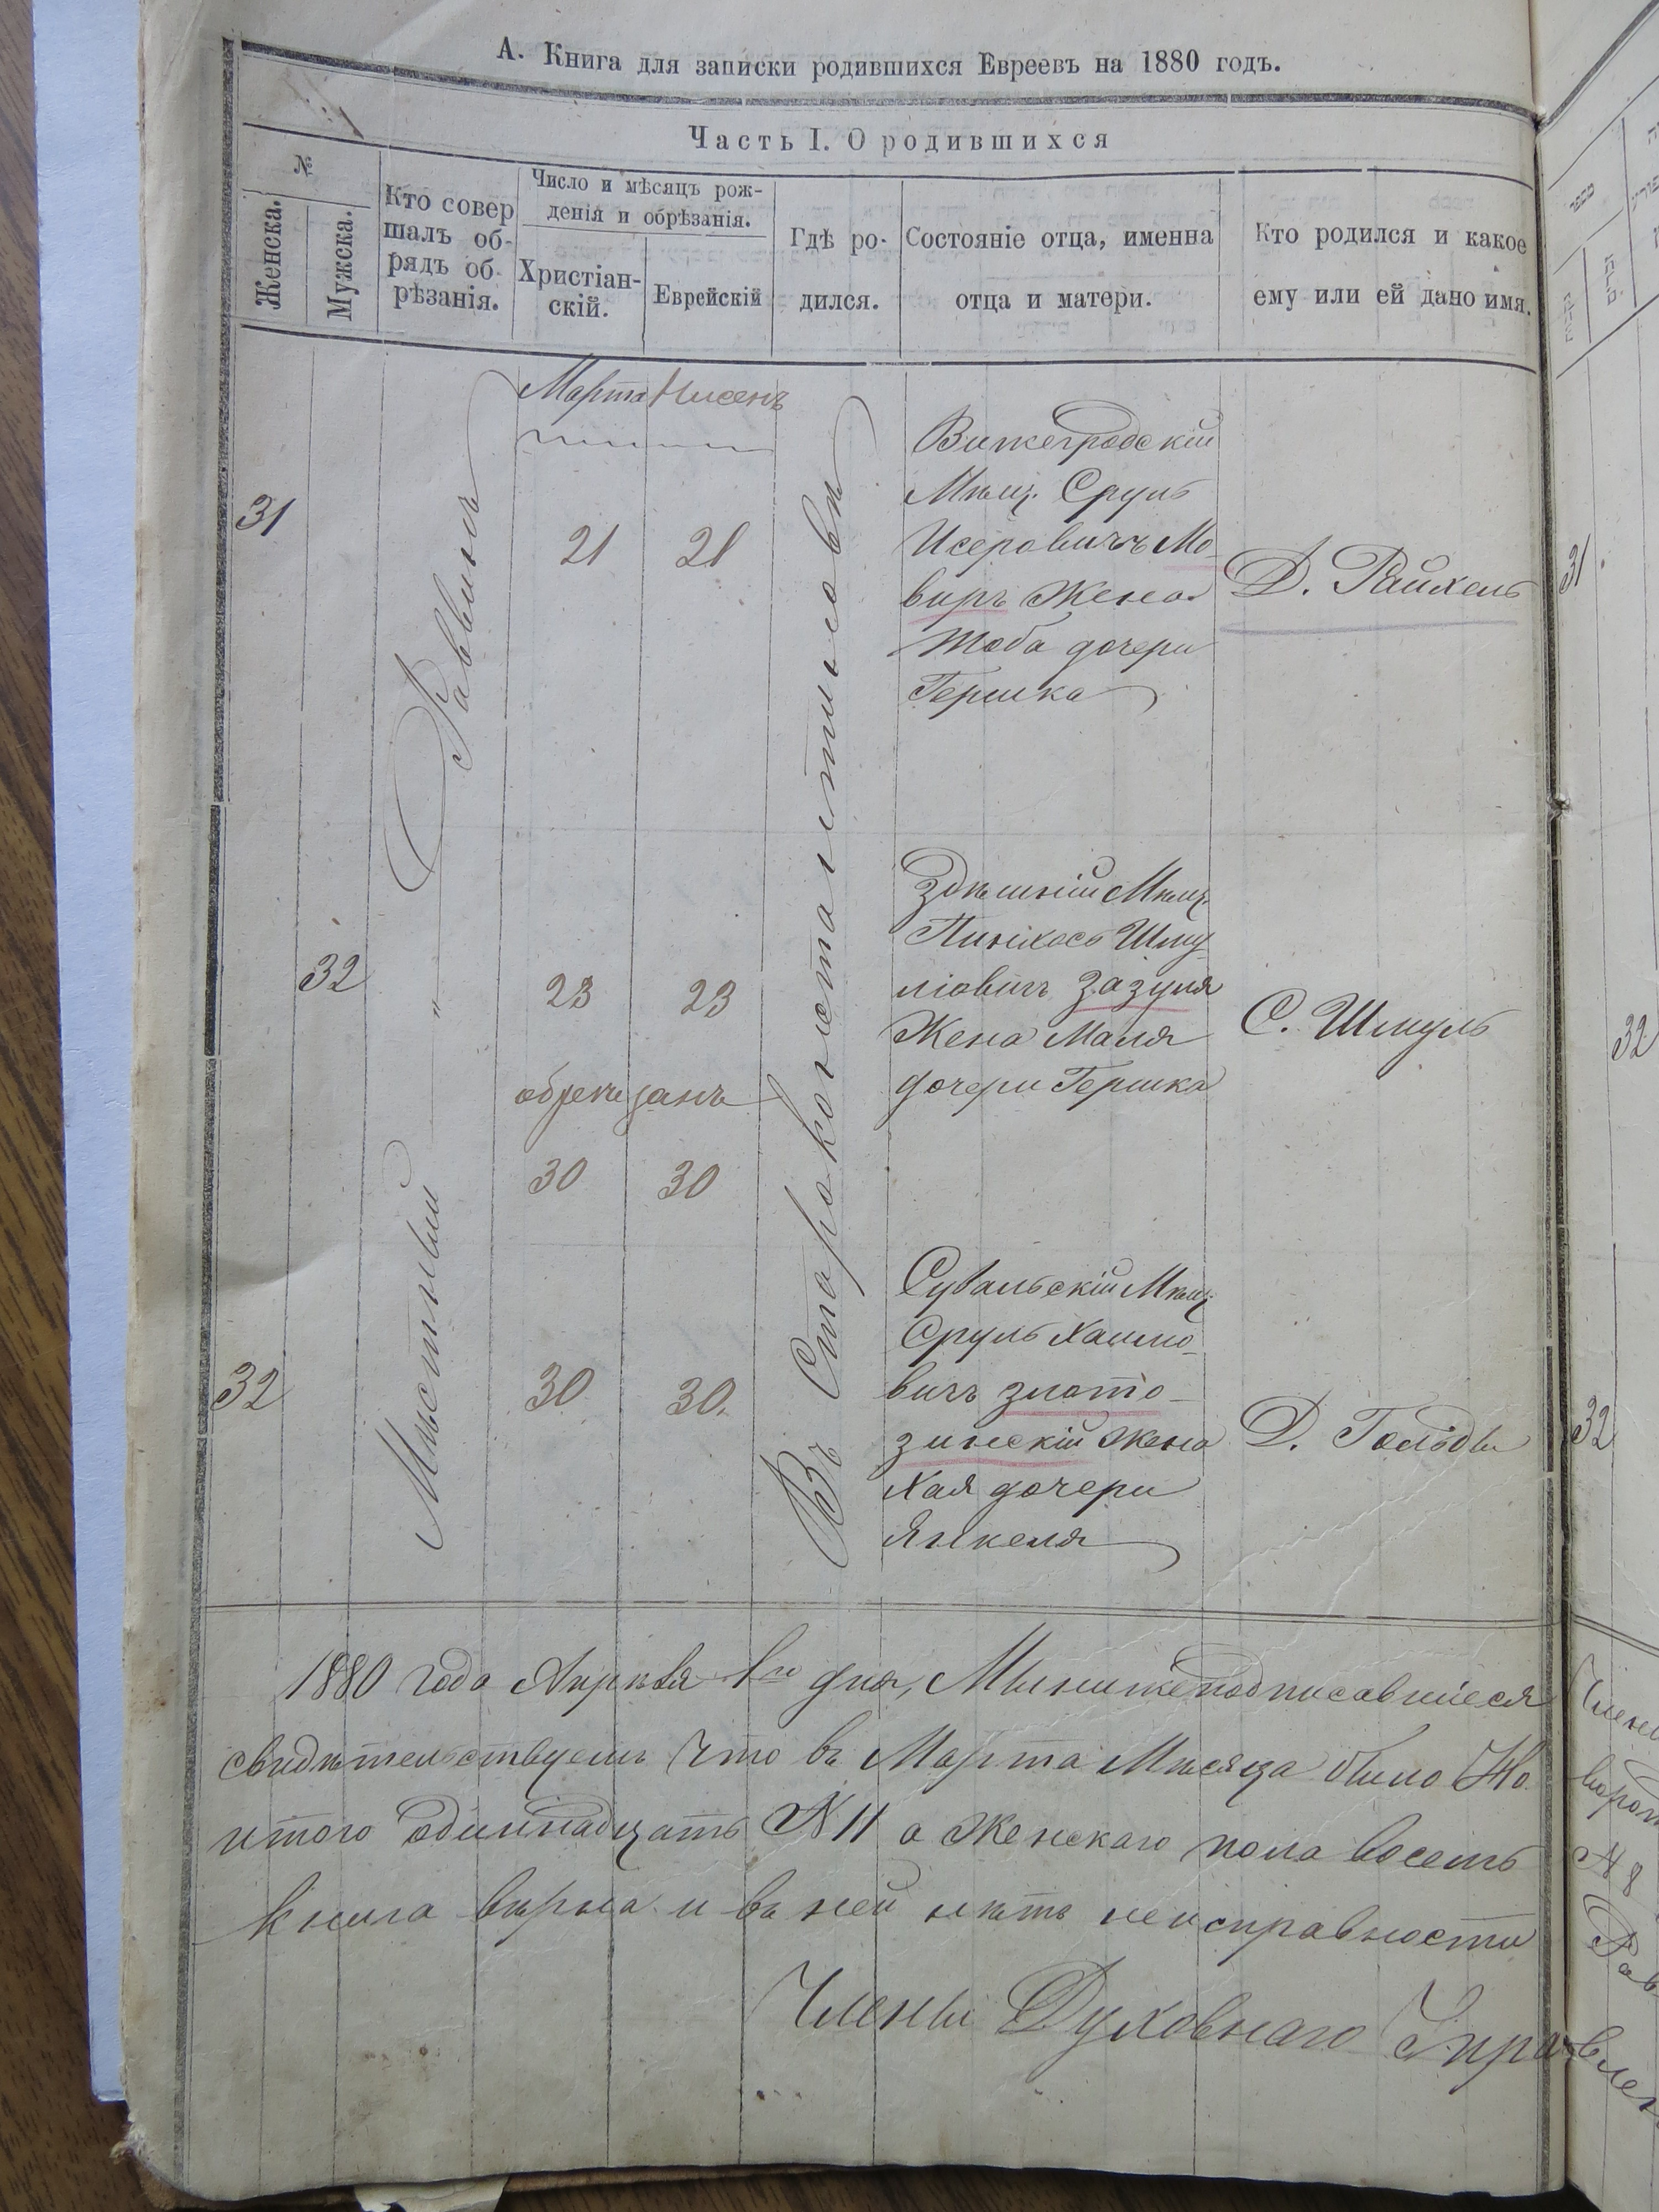 А. Книга для записки родившихся Евреевъ на 1880 годъ.
Часть I. О родившихся
№
Женска.
Мужска.
Кто совер
шалъ об-
рядъ об-
рѣзанія.
Число и мѣсяцъ рож-
денія и обрѣзанія.
Христіан-
скій.
Еврейскій
Гдѣ ро-
дился.
Состояніе отца, именна
отца и матери.
Кто родился и какое
ему или ей дано имя.
Марта Нисенъ
Мѣстный " Раввинъ
Въ Староконстантиновѣ
31
21 21
Вижегродскій
Мѣщ. Сруль
Исеровичъ Мо-
виръ Жена
Тоба дочери
Гершка
Д. Райхель
31
32
23 23
обре занъ
30 30
Здѣшній Мѣщ.
Пинхосъ Шму
ліовичъ Зазуля
Жена Маля
дочери Гершка
С. Шмуль
32
32
30 30.
Сувальскій Мѣщ.
Сруль Хаимо-
вичъ злото-
зинскій Жена
Хая дочери
Янкеля
Д. Гольда
32
1880 года Апрѣля 1го дня, Мы нижеподписавшіеся
свидѣтельствуемъ что въ Марта Мѣсяца было
итого одиннадцать N 11 а Женскаго пола восемь
книга вѣрна и въ ней нѣтъ неисправности
Члены Духовнаго Правлен
N 8